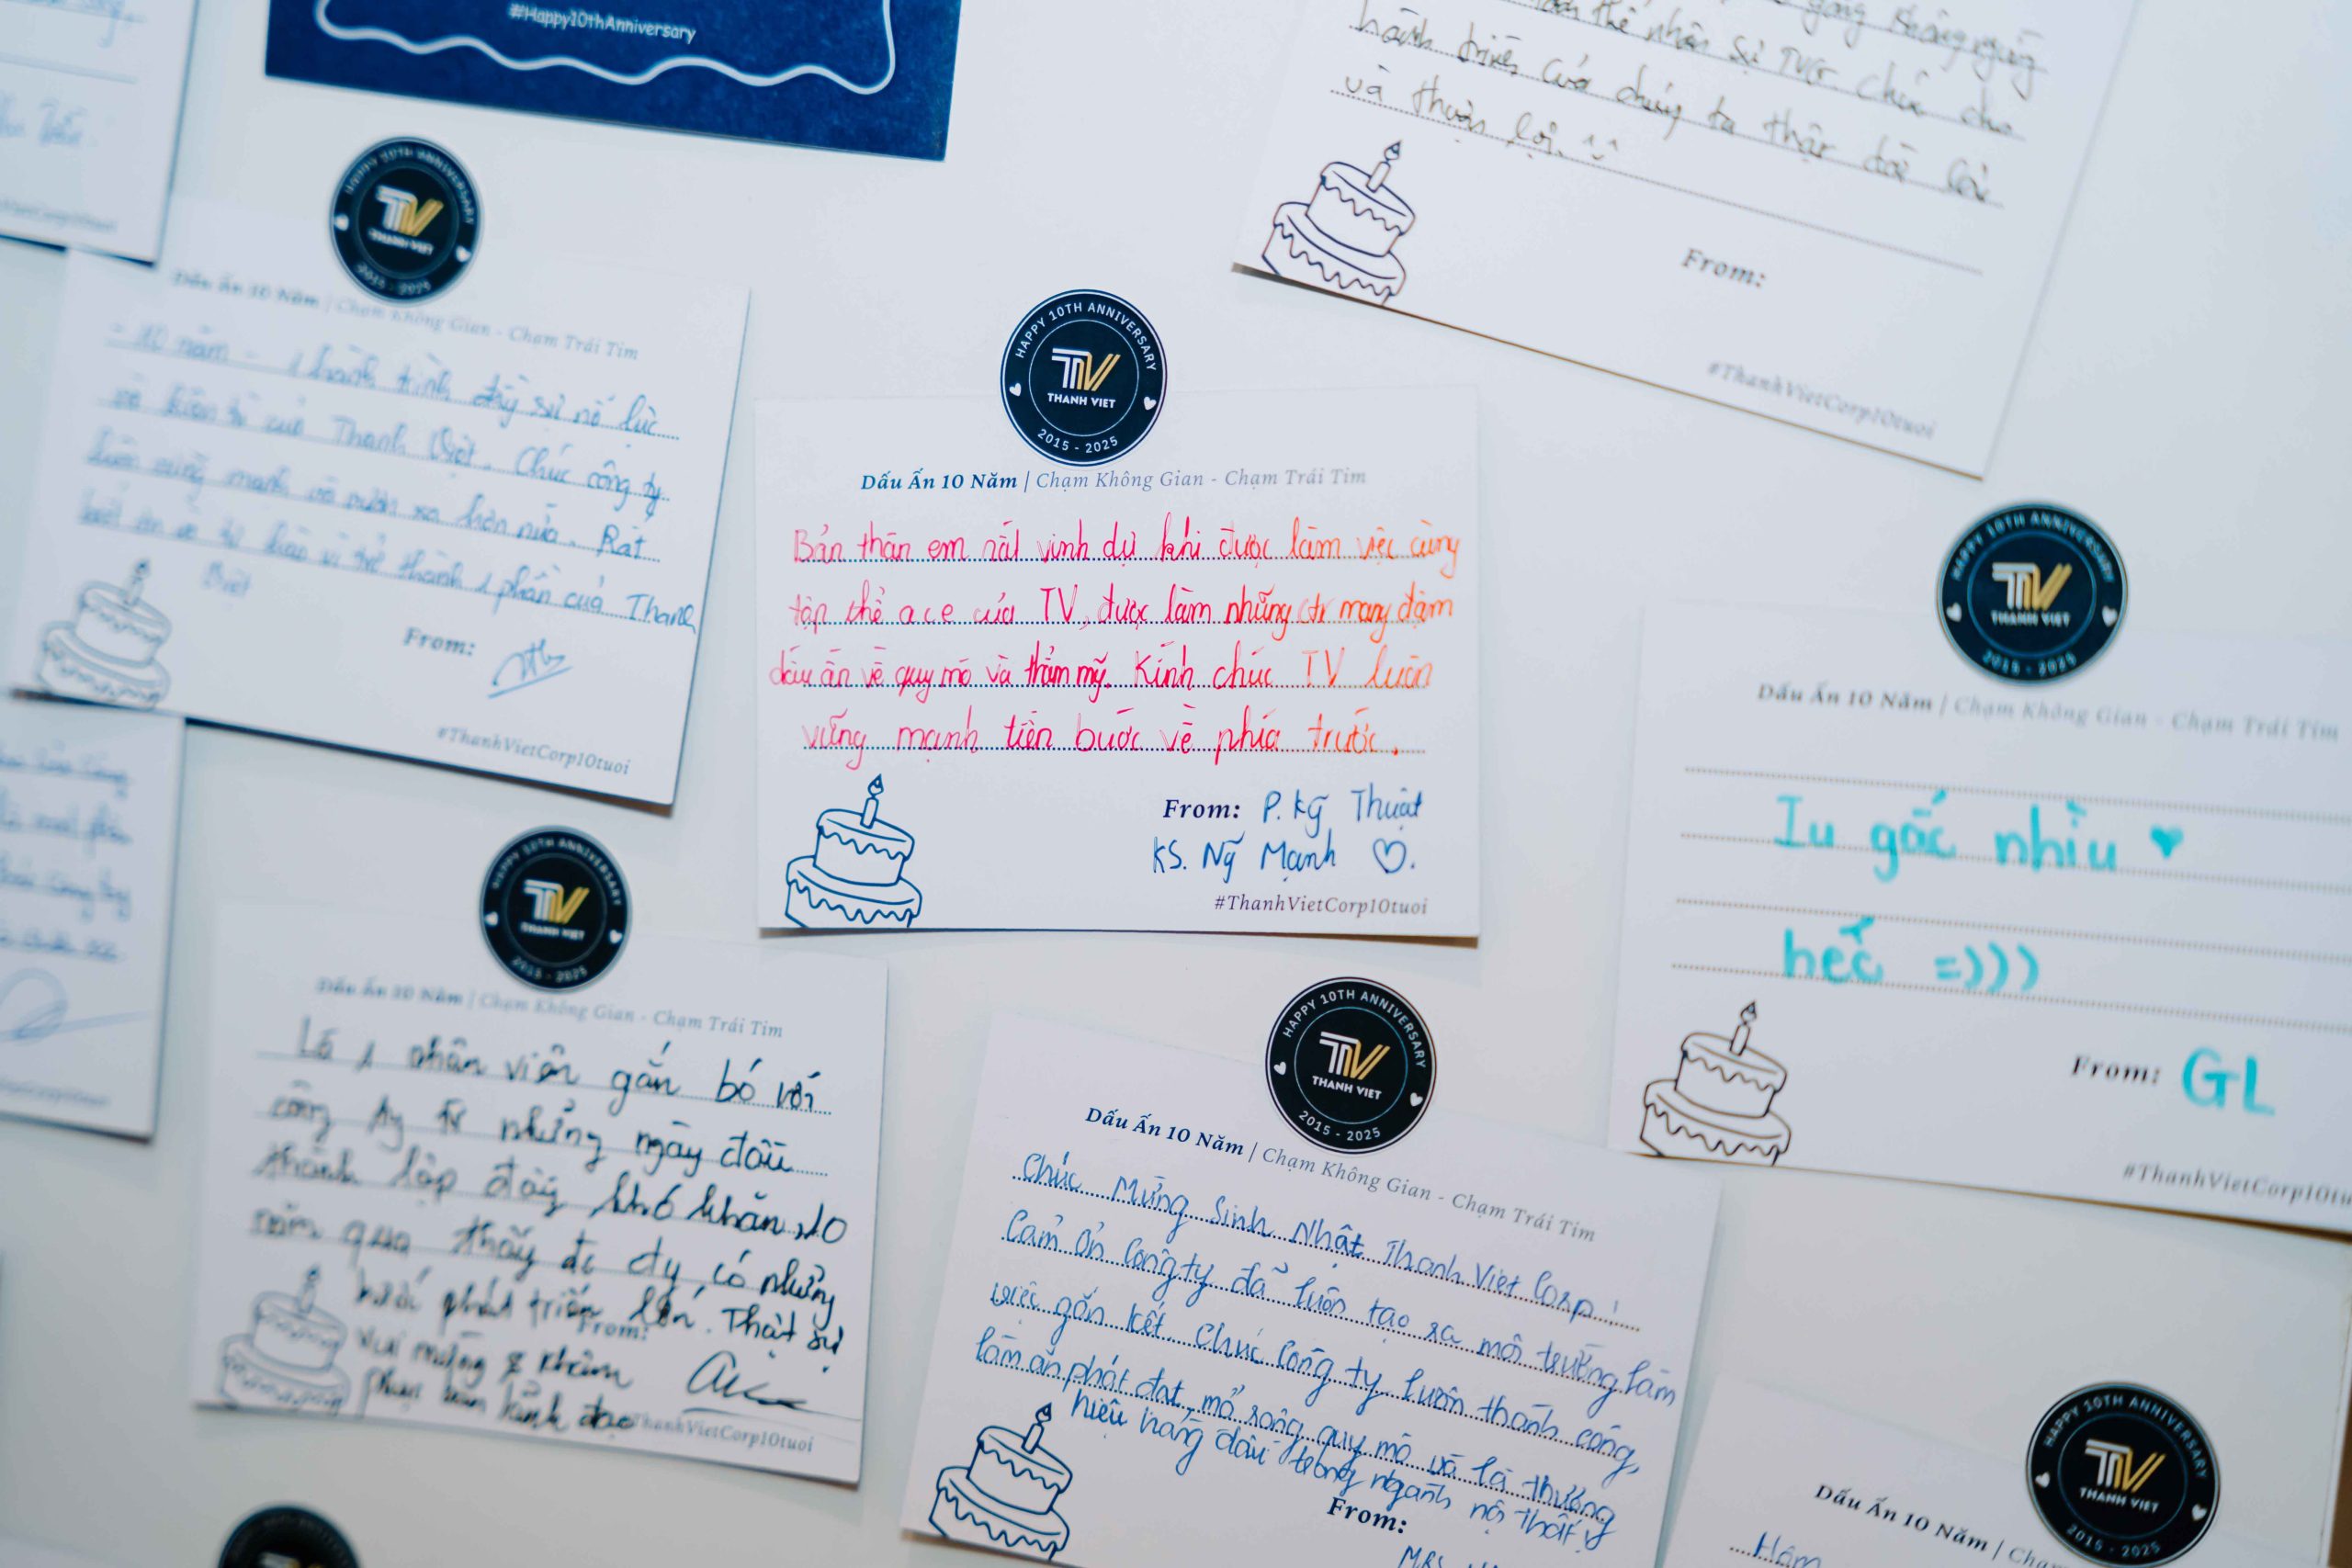 #Happy10thAnniversary
nhân sự TVer. Chúc cho
hành trình của chúng ta thật dài lâu
và thuận lợi ^^
From:
#ThanhVietCorp10tuoi
HAPPY 10TH ANNIVERSARY
TV
THANH VIET
2015 - 2025
Dấu Ấn 10 Năm | Chạm Không Gian - Chạm Trái Tim
- 10 năm - 1 hành trình đầy sự nỗ lực
và kiên trì của Thanh Việt. Chúc công ty
luôn vững mạnh và vươn xa hơn nữa. Rất
biết ơn và tự hào vì trở thành 1 phần của Thanh
Việt
From:
#ThanhVietCorp10tuoi
HAPPY 10TH ANNIVERSARY
TV
THANH VIET
2015 - 2025
Dấu Ấn 10 Năm | Chạm Không Gian - Chạm Trái Tim
Bản thân em rất vinh dự khi được làm việc cùng
tập thể ace của TV, được làm những ctr mang đậm
dấu ấn về quy mô và thẩm mỹ. Kính chúc TV luôn
vững mạnh tiến bước về phía trước.
From: P. Kỹ Thuật
KS. Ng̃ Mạnh ♡.
#ThanhVietCorp10tuoi
HAPPY 10TH ANNIVERSARY
TV
THANH VIET
2015 - 2025
Dấu Ấn 10 Năm | Chạm Không Gian - Chạm Trái Tim
Iu gấc nhìu ♥
hếc =)))
From: GL
#ThanhVietCorp10tu
HAPPY 10TH ANNIVERSARY
TV
THANH VIET
2015 - 2025
Dấu Ấn 10 Năm | Chạm Không Gian - Chạm Trái Tim
Là 1 nhân viên gắn bó với
công ty từ những ngày đầu
thành lập đầy khó khăn, 10
năm qua thấy đc cty có những
bước phát triển lớn. Thật sự
vui mừng & khâm
phục ban lãnh đạo
From:
ThanhVietCorp10tuoi
HAPPY 10TH ANNIVERSARY
TV
THANH VIET
2015 - 2025
Dấu Ấn 10 Năm | Chạm Không Gian - Chạm Trái Tim
Chúc Mừng Sinh Nhật Thanh Viet Corp!
Cảm ơn Công ty đã luôn tạo ra môi trường làm
việc gắn kết. Chúc Công ty luôn thành công,
làm ăn phát đạt, mở rộng quy mô và là thương
hiệu hàng đầu trong ngành nội thất
From:
MRS
HAPPY 10TH ANNIVERSARY
TV
THANH VIET
2015 - 2025
Dấu Ấn 10 Năm | Chạ
Hôm